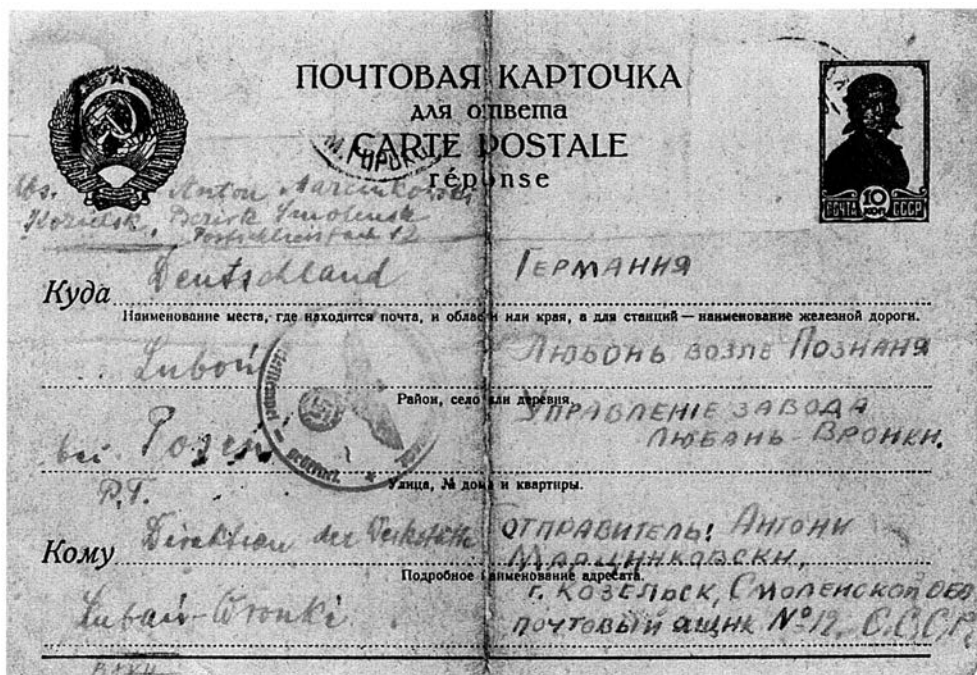 ПОЧТОВАЯ КАРТОЧКА
для ответа
CARTE POSTALE
réponse
ПОЧТА 10 КОП. СССР
Abs. Anton Marcinkowski
Kozielsk, Bezirk Smolensk
Postschliessfach 12
Куда Deutschland ГЕРМАННЯ
Наименование места, где находится почта, и области или края, а для станций — наименование железной дороги.
Luboń ЛЮБОНЬ ВОЗЛЕ ПОЗНАНЯ
Район, село или деревня.
bei Posen УПРАВЛЕНІЕ ЗАВОДА
ЛЮБАНЬ-ВРОНКИ.
Улица, № дома и квартиры.
P.T.
Кому Direktion der ОТПРАВИТЕЛЬ! АНТОНИ
МАРЦИНКОВСКИ,
Подробное наименование адресата.
Г. КОЗЕЛЬСК, СМОЛЕНСКОЙ ОБЛ
Lubań-Wronki ПОЧТОВЫЙ ЯЩИК № 12. С.С.С.Р.
geöffnet